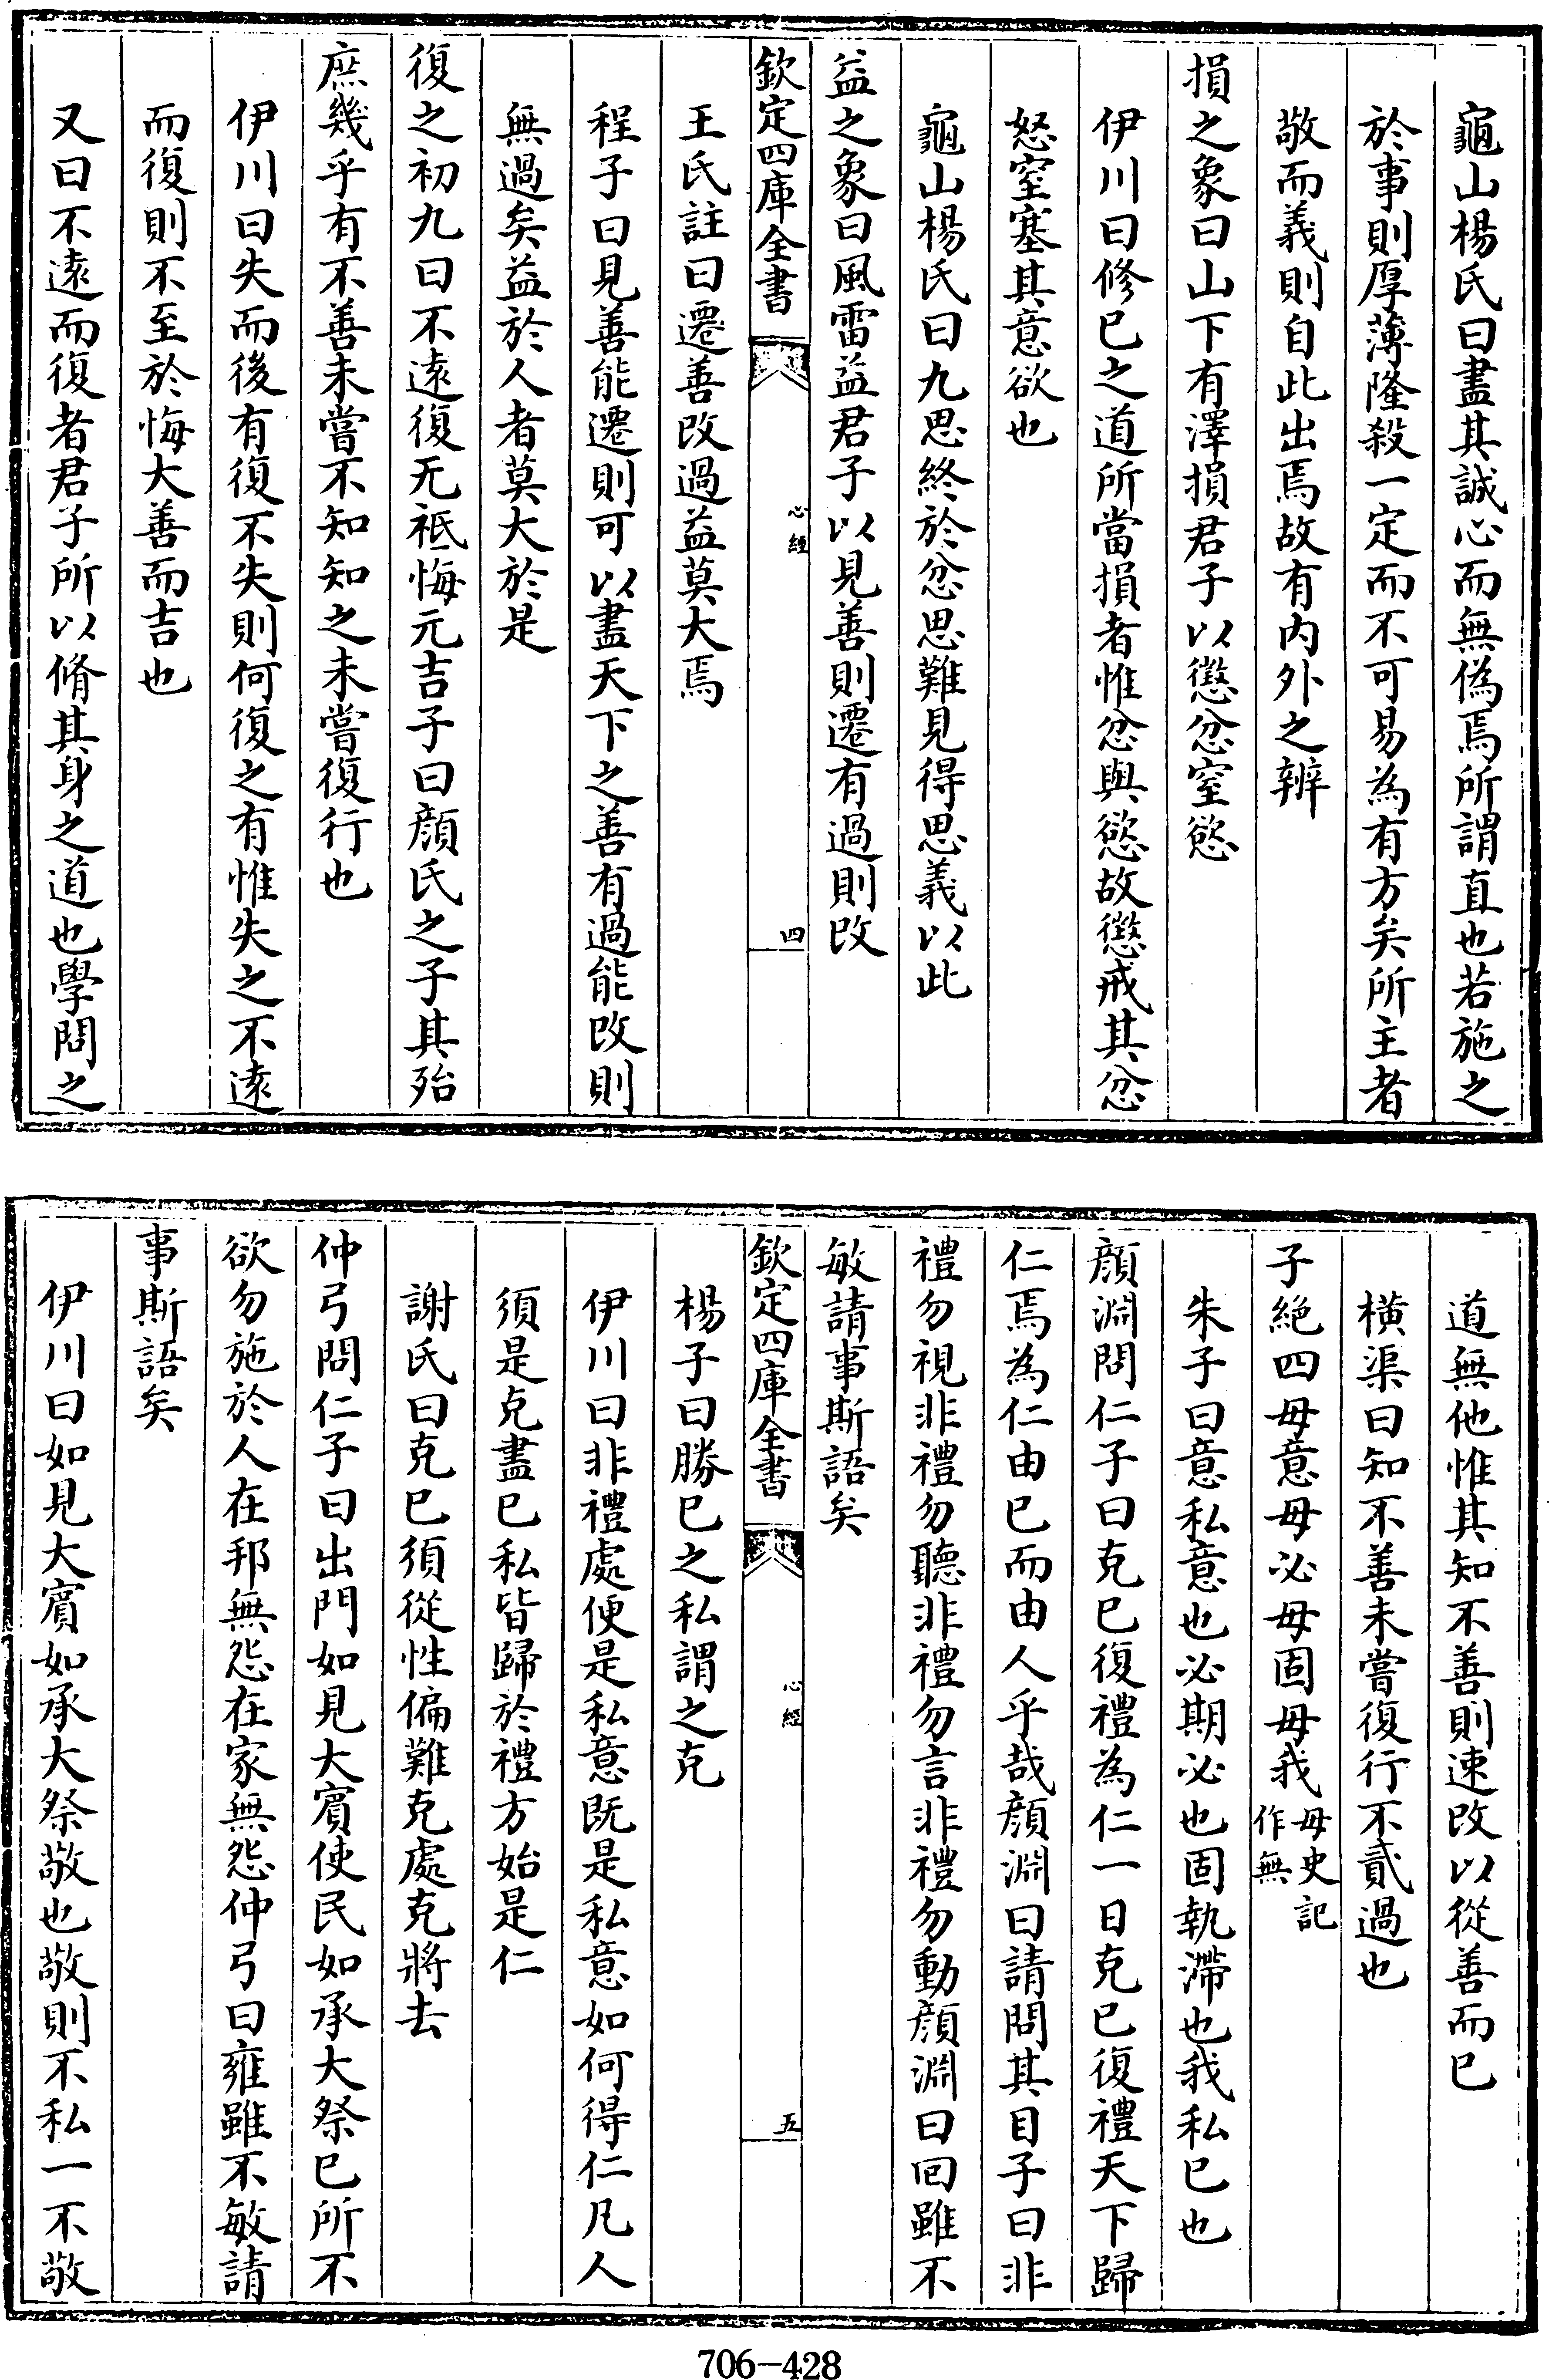 龜山楊氏曰盡其誠心而無偽焉所謂直也若施之
於事則厚薄隆殺一定而不可易為有方矣所主者
敬而義則自此出焉故有内外之辨
損之象曰山下有澤損君子以懲忿窒慾
伊川曰修已之道所當損者惟忿與慾故懲戒其忿
怒窒塞其意欲也
龜山楊氏曰九思終於忿思難見得思義以此
益之象曰風雷益君子以見善則遷有過則改
欽定四庫全書
心經
四
王氏註曰遷善改過益莫大焉
程子曰見善能遷則可以盡天下之善有過能改則
無過矣益於人者莫大於是
復之初九曰不遠復无祗悔元吉子曰顔氏之子其殆
庶幾乎有不善未嘗不知知之未嘗復行也
伊川曰失而後有復不失則何復之有惟失之不遠
而復則不至於悔大善而吉也
又曰不遠而復者君子所以脩其身之道也學問之
道無他惟其知不善則速改以從善而已
橫渠曰知不善未嘗復行不貳過也
子絶四毋意毋必毋固毋我毋史記作無
朱子曰意私意也必期必也固執滯也我私已也
顔淵問仁子曰克已復禮為仁一日克已復禮天下歸
仁焉為仁由已而由人乎哉顔淵曰請問其目子曰非
禮勿視非禮勿聽非禮勿言非禮勿動顔淵曰回雖不
敏請事斯語矣
欽定四庫全書
心經
五
楊子曰勝已之私謂之克
伊川曰非禮處便是私意既是私意如何得仁凡人
須是克盡已私皆歸於禮方始是仁
謝氏曰克已須從性偏難克處克將去
仲弓問仁子曰出門如見大賓使民如承大祭已所不
欲勿施於人在邦無怨在家無怨仲弓曰雍雖不敏請
事斯語矣
伊川曰如見大賓如承大祭敬也敬則不私一不敬
706-428